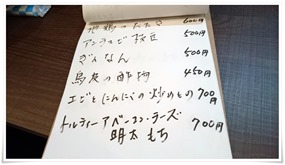 地鶏のたたき 600円
アンチョビ枝豆 500円
ぎんなん 500円
鳥皮の酢物 450円
エビとにんにくの炒めもの 700円
トルティーアベーコン・チーズ 700円
明太もち